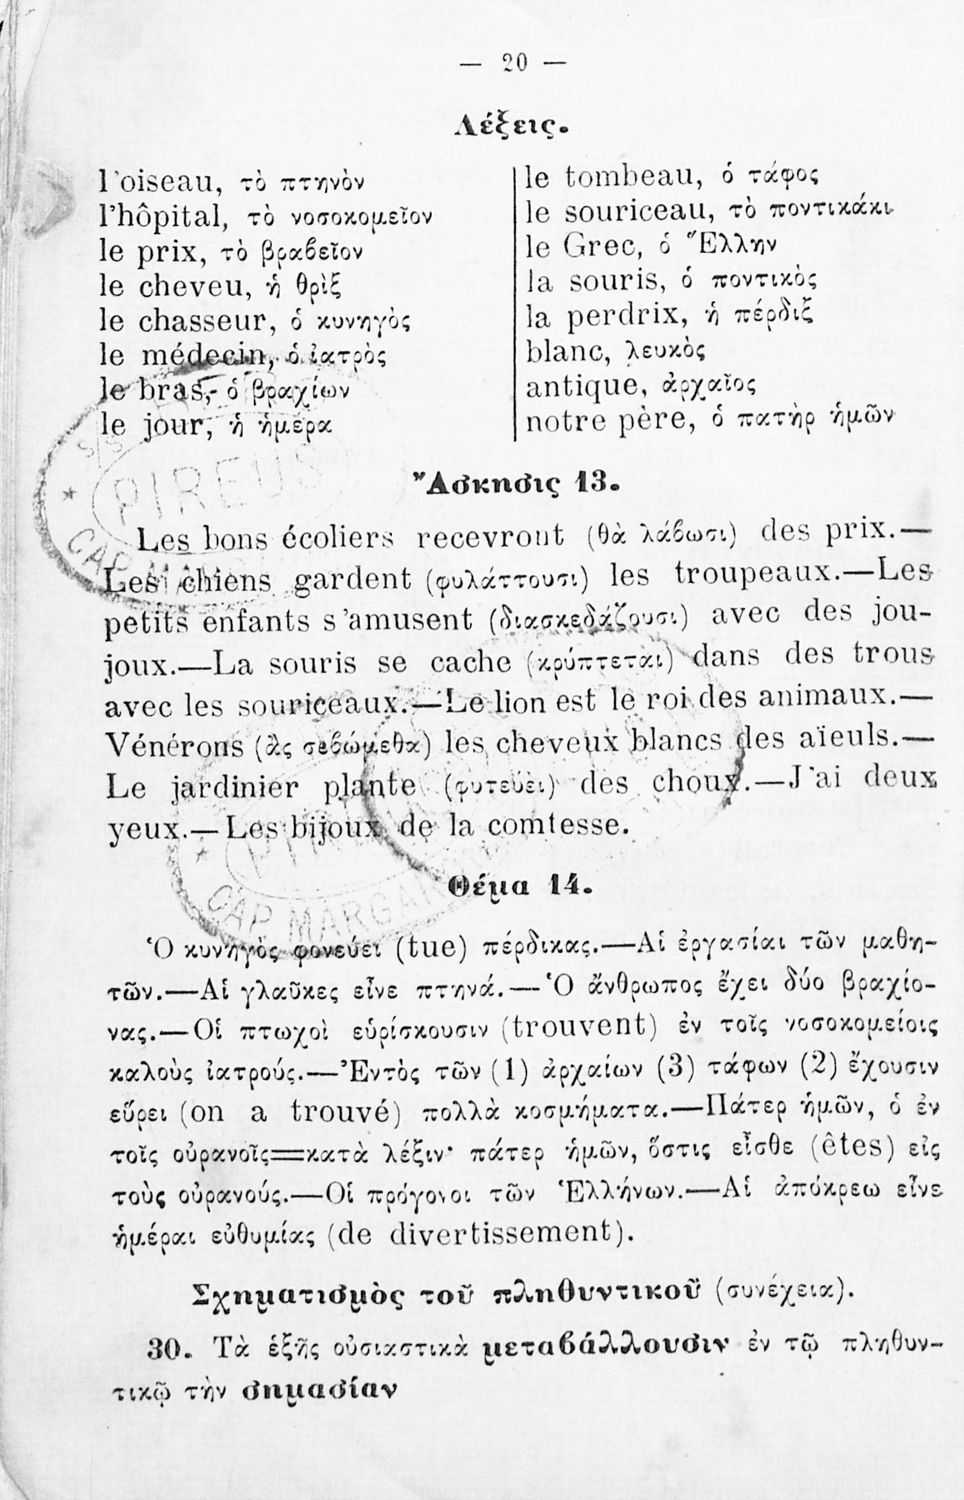 — 20 —
Λέξεις.
l'oiseau, τὸ πτηνὸν
l'hôpital, τὸ νοσοκομεῖον
le prix, τὸ βραβεῖον
le cheveu, ἡ θρὶξ
le chasseur, ὁ κυνηγὸς
le médecin, ὁ ἰατρὸς
le bras, ὁ βραχίων
le jour, ἡ ἡμέρα
le tombeau, ὁ τάφος
le souriceau, τὸ ποντικάκι
le Grec, ὁ Ἕλλην
la souris, ὁ ποντικὸς
la perdrix, ἡ πέρδιξ
blanc, λευκὸς
antique, ἀρχαῖος
notre père, ὁ πατὴρ ἡμῶν
Ἄσκησις 13.
Les bons écoliers recevront (θὰ λάβωσι) des prix.—
Les chiens gardent (φυλάττουσι) les troupeaux.—Les
petits enfants s'amusent (διασκεδάζουσι) avec des jou-
joux.—La souris se cache (κρύπτεται) dans des trous
avec les souriceaux.—Le lion est le roi des animaux.—
Vénérons (ἂς σεβώμεθα) les cheveux blancs des aïeuls.—
Le jardinier plante (φυτεύει) des choux.—J'ai deux
yeux.—Les bijoux de la comtesse.
Θέμα 14.
Ὁ κυνηγὸς φονεύει (tue) πέρδικας.—Αἱ ἐργασίαι τῶν μαθη-
τῶν.—Αἱ γλαῦκες εἶνε πτηνά.—Ὁ ἄνθρωπος ἔχει δύο βραχίο-
νας.—Οἱ πτωχοὶ εὑρίσκουσιν (trouvent) ἐν τοῖς νοσοκομείοις
καλοὺς ἰατρούς.—Ἐντὸς τῶν (1) ἀρχαίων (3) τάφων (2) ἔχουσιν
εὕρει (on a trouvé) πολλὰ κοσμήματα.—Πάτερ ἡμῶν, ὁ ἐν
τοῖς οὐρανοῖς=κατὰ λέξιν· πάτερ ἡμῶν, ὅστις εἶσθε (êtes) εἰς
τοὺς οὐρανούς.—Οἱ πρόγονοι τῶν Ἑλλήνων.—Αἱ ἀπόκρεω εἶνε
ἡμέραι εὐθυμίας (de divertissement).
Σχηματισμὸς τοῦ πληθυντικοῦ (συνέχεια).
30. Τὰ ἑξῆς οὐσιαστικὰ μεταβάλλουσιν ἐν τῷ πληθυν-
τικῷ τὴν σημασίαν